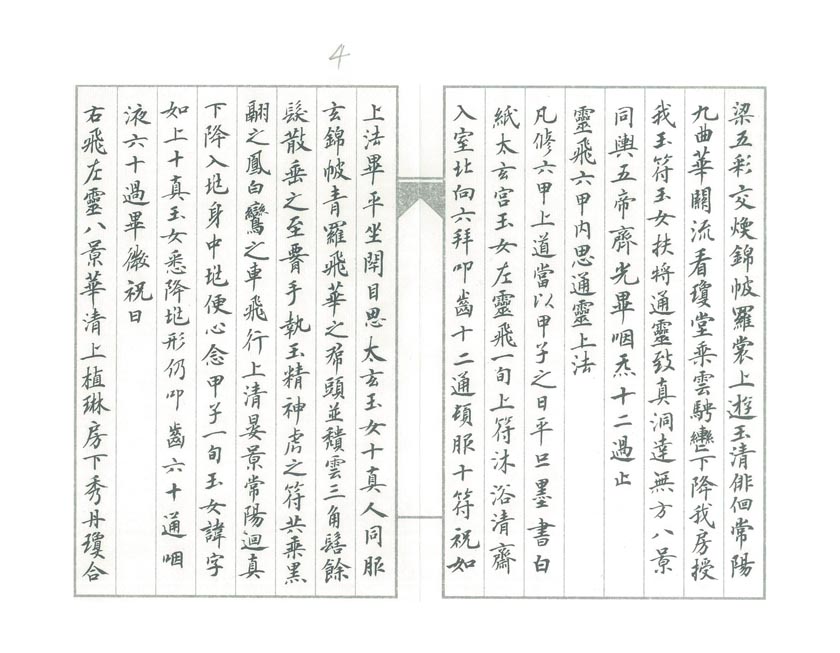 4
梁五彩交煥錦帔羅裳上遊玉清俳佪常陽
九曲華關流看瓊堂乘雲騁轡下降我房授
我玉符玉女扶將通靈致真洞達無方八景
同輿五帝齊光畢咽炁十二過止
靈飛六甲內思通靈上法
凡修六甲上道當以甲子之日平旦墨書白
紙太玄宮玉女左靈飛一旬上符沐浴清齋
入室北向六拜叩齒十二通頓服十符祝如
上法畢平坐閉目思太玄玉女十真人同服
玄錦帔青羅飛華之帬頭並頹雲三角髻餘
髮散垂之至䯗手執玉精神虎之符共乘黑
翮之鳳白鸞之車飛行上清晏景常陽迴真
下降入地身中地便心念甲子一旬玉女諱字
如上十真玉女悉降地形仍叩齒六十通咽
液六十過畢微祝曰
右飛左靈八景華清上植琳房下秀丹瓊合